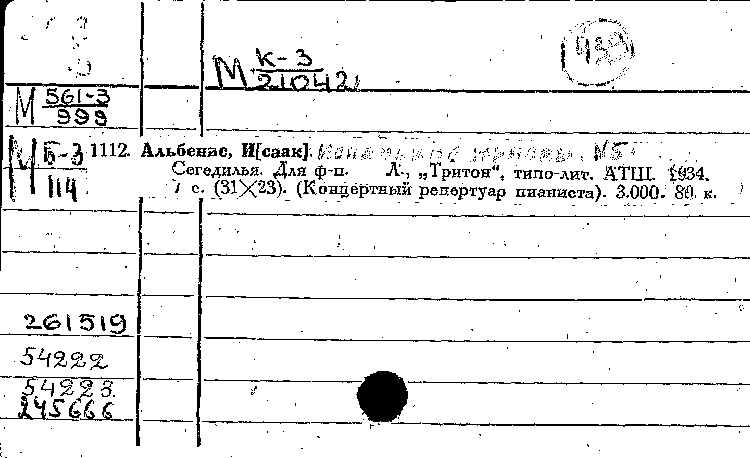 939
М К-3
21042
М 561-3
999
М Б-3
114
1112. Альбенис, И[саак].
Сегедилья. Для ф-п. Л., „Тритон“, типо-лит. АТШ. 1934.
7 с. (31×23). (Концертный репертуар пианиста). 3.000. 80 к.
261519
54222
54223
245666